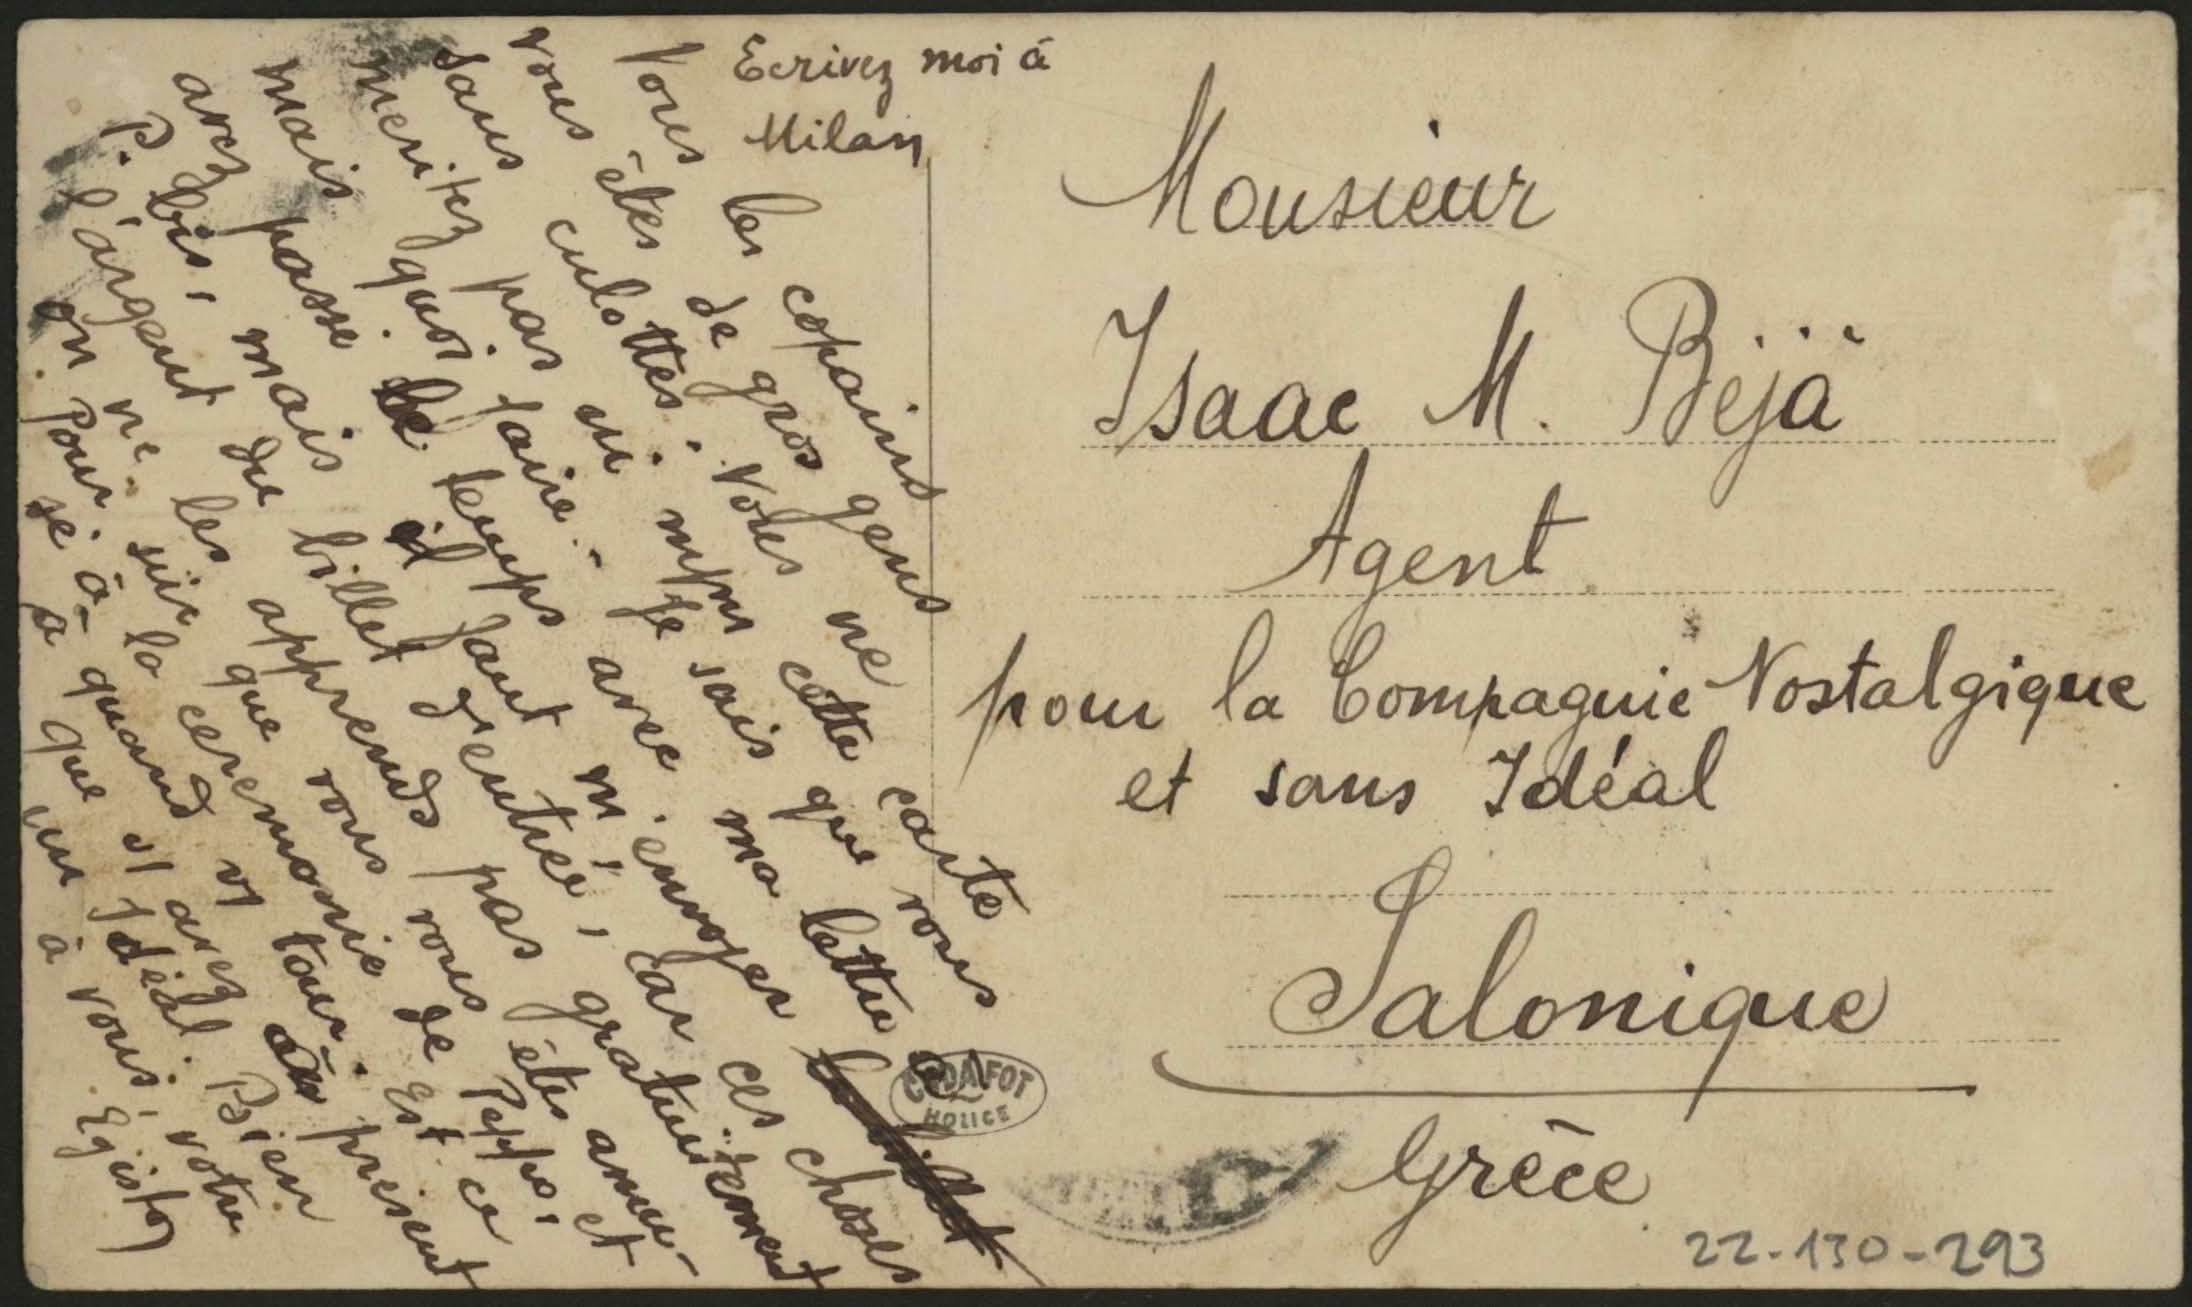 Ecrivez moi à
Milan
Vous les copains
vous êtes de gros gens
sans culottes. Vous ne
meritez pas ni mpm cette carte
mais quoi faire. Je sais que vous
avez passé le temps avec ma lettre et
P. bis, mais il faut m'envoyer le billet
l'argent du billet d'entrée, car ces choses
on ne les apprends pas gratuitement
Pour sûr que vous vous êtes amu-
sé à la ceremonie de Peppo, et
à quand vs tour. Est ce
que vs avez au présent
un Idéal. Bien
à vous, votre
Egisto
Monsieur
Isaac M. Béjà
Agent
pour la Compagnie Nostalgique
et sans Idéal
Salonique
Grèce
22-130-293